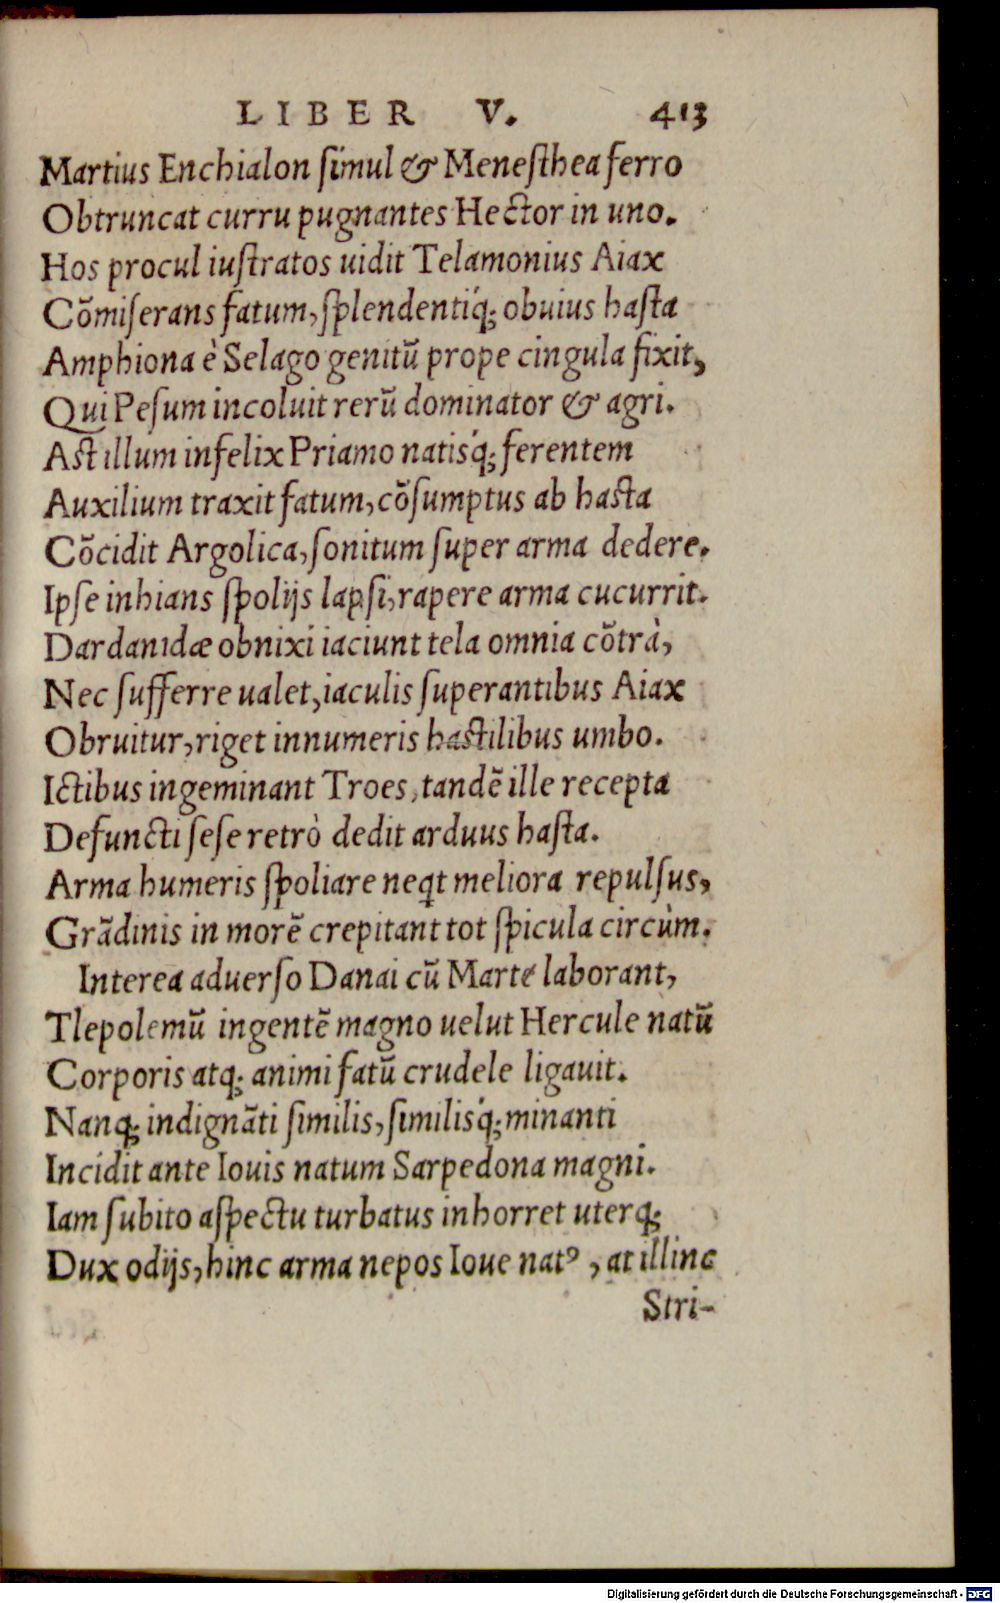 LIBER V. 413
Martius Enchialon simul & Menesthea ferro
Obtruncat curru pugnantes Hector in uno.
Hos procul iustratos uidit Telamonius Aiax
Cõmiserans fatum, splendentiq́; obuius hasta
Amphiona è Selago genitũ prope cingula fixit,
Qui Pesum incoluit rerũ dominator & agri.
Ast illum infelix Priamo natisq́; ferentem
Auxilium traxit fatum, cõsumptus ab hasta
Cõcidit Argolica, sonitum super arma dedere.
Ipse inhians spolijs lapsi, rapere arma cucurrit.
Dardanidæ obnixi iaciunt tela omnia cõtrà,
Nec sufferre ualet, iaculis superantibus Aiax
Obruitur, riget innumeris hastilibus umbo.
Ictibus ingeminant Troes, tandẽ ille recepta
Defuncti sese retrò dedit arduus hasta.
Arma humeris spoliare neqt meliora repulsus,
Grãdinis in morẽ crepitant tot spicula circùm.
Interea aduerso Danai cũ Marte laborant,
Tlepolemũ ingentẽ magno uelut Hercule natũ
Corporis atq; animi fatũ crudele ligauit.
Nanq; indignãti similis, similisq́; minanti
Incidit ante Iouis natum Sarpedona magni.
Iam subito aspectu turbatus inhorret uterq;
Dux odijs, hinc arma nepos Ioue natꝰ, at illinc
Stri-
Digitalisierung gefördert durch die Deutsche Forschungsgemeinschaft - DFG